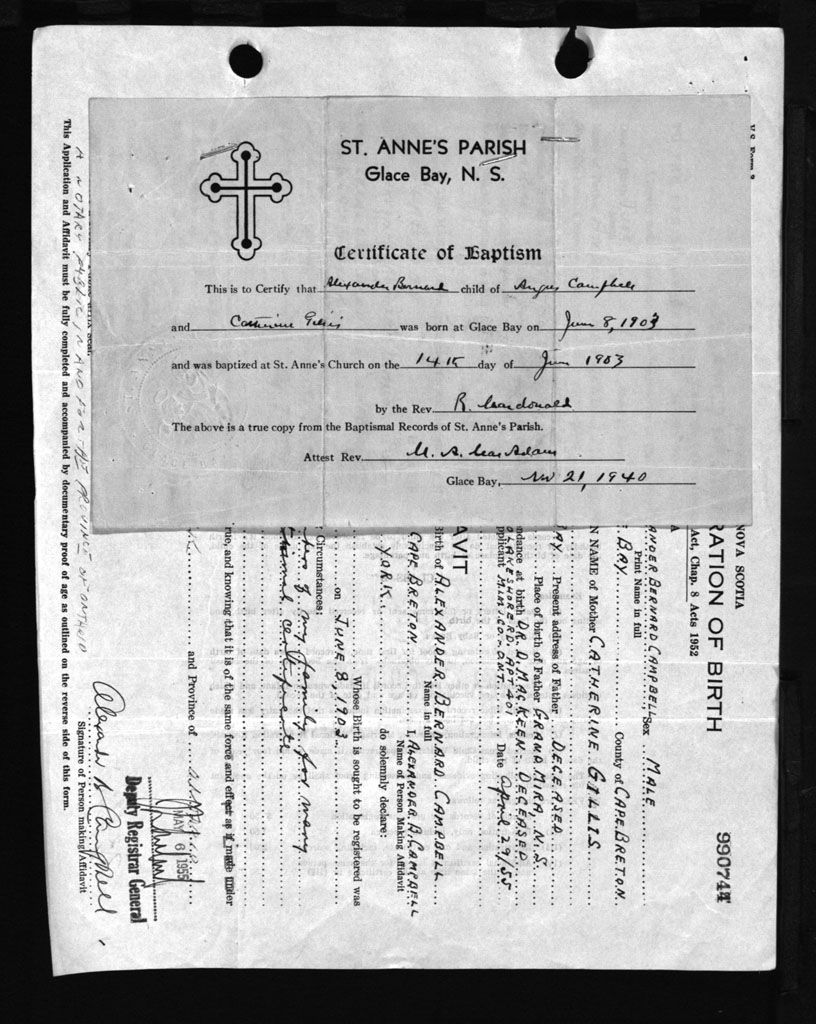 ST. ANNE'S PARISH
Glace Bay, N. S.
Certificate of Baptism
This is to Certify that Alexander Bernard child of Angus Campbell
and Catherine Gillis was born at Glace Bay on June 8, 1903
and was baptized at St. Anne's Church on the 14th day of June 1903
by the Rev. R. Macdonald
The above is a true copy from the Baptismal Records of St. Anne's Parish.
Attest Rev. M. A. MacAdam
Glace Bay, Nov 21, 1940
NOVA SCOTIA
Act, Chap. 8 Acts 1952
RATION OF BIRTH
990744
ANDER BERNARD CAMPBELL Sex MALE
Print Name in full
BAY County of CAPE BRETON
N NAME of Mother CATHERINE GILLIS
AY Present address of Father DECEASED
Place of birth of Father GRAND MIRA, N.S.
ndance at birth DR. D. MACKEEN - DECEASED
LAKESHORE RD. APT 401
pplicant MIMICO - ONT. Date April 29/55
AVIT
Birth of ALEXANDER BERNARD CAMPBELL
Name in full
CAPE BRETON I, ALEXANDER B. CAMPBELL
Name of Person Making Affidavit
YORK do solemnly declare:
Whose Birth is sought to be registered was
on JUNE 8, 1903
Circumstances:
of my family for many
rue, and knowing that it is of the same force and effect as if made under
and Province of
MAY 6 1955
Deputy Registrar General
Signature of Person making Affidavit
A NOTARY PUBLIC IN AND FOR THE PROVINCE OF ONTARIO
This Application and Affidavit must be fully completed and accompanied by documentary proof of age as outlined on the reverse side of this form.